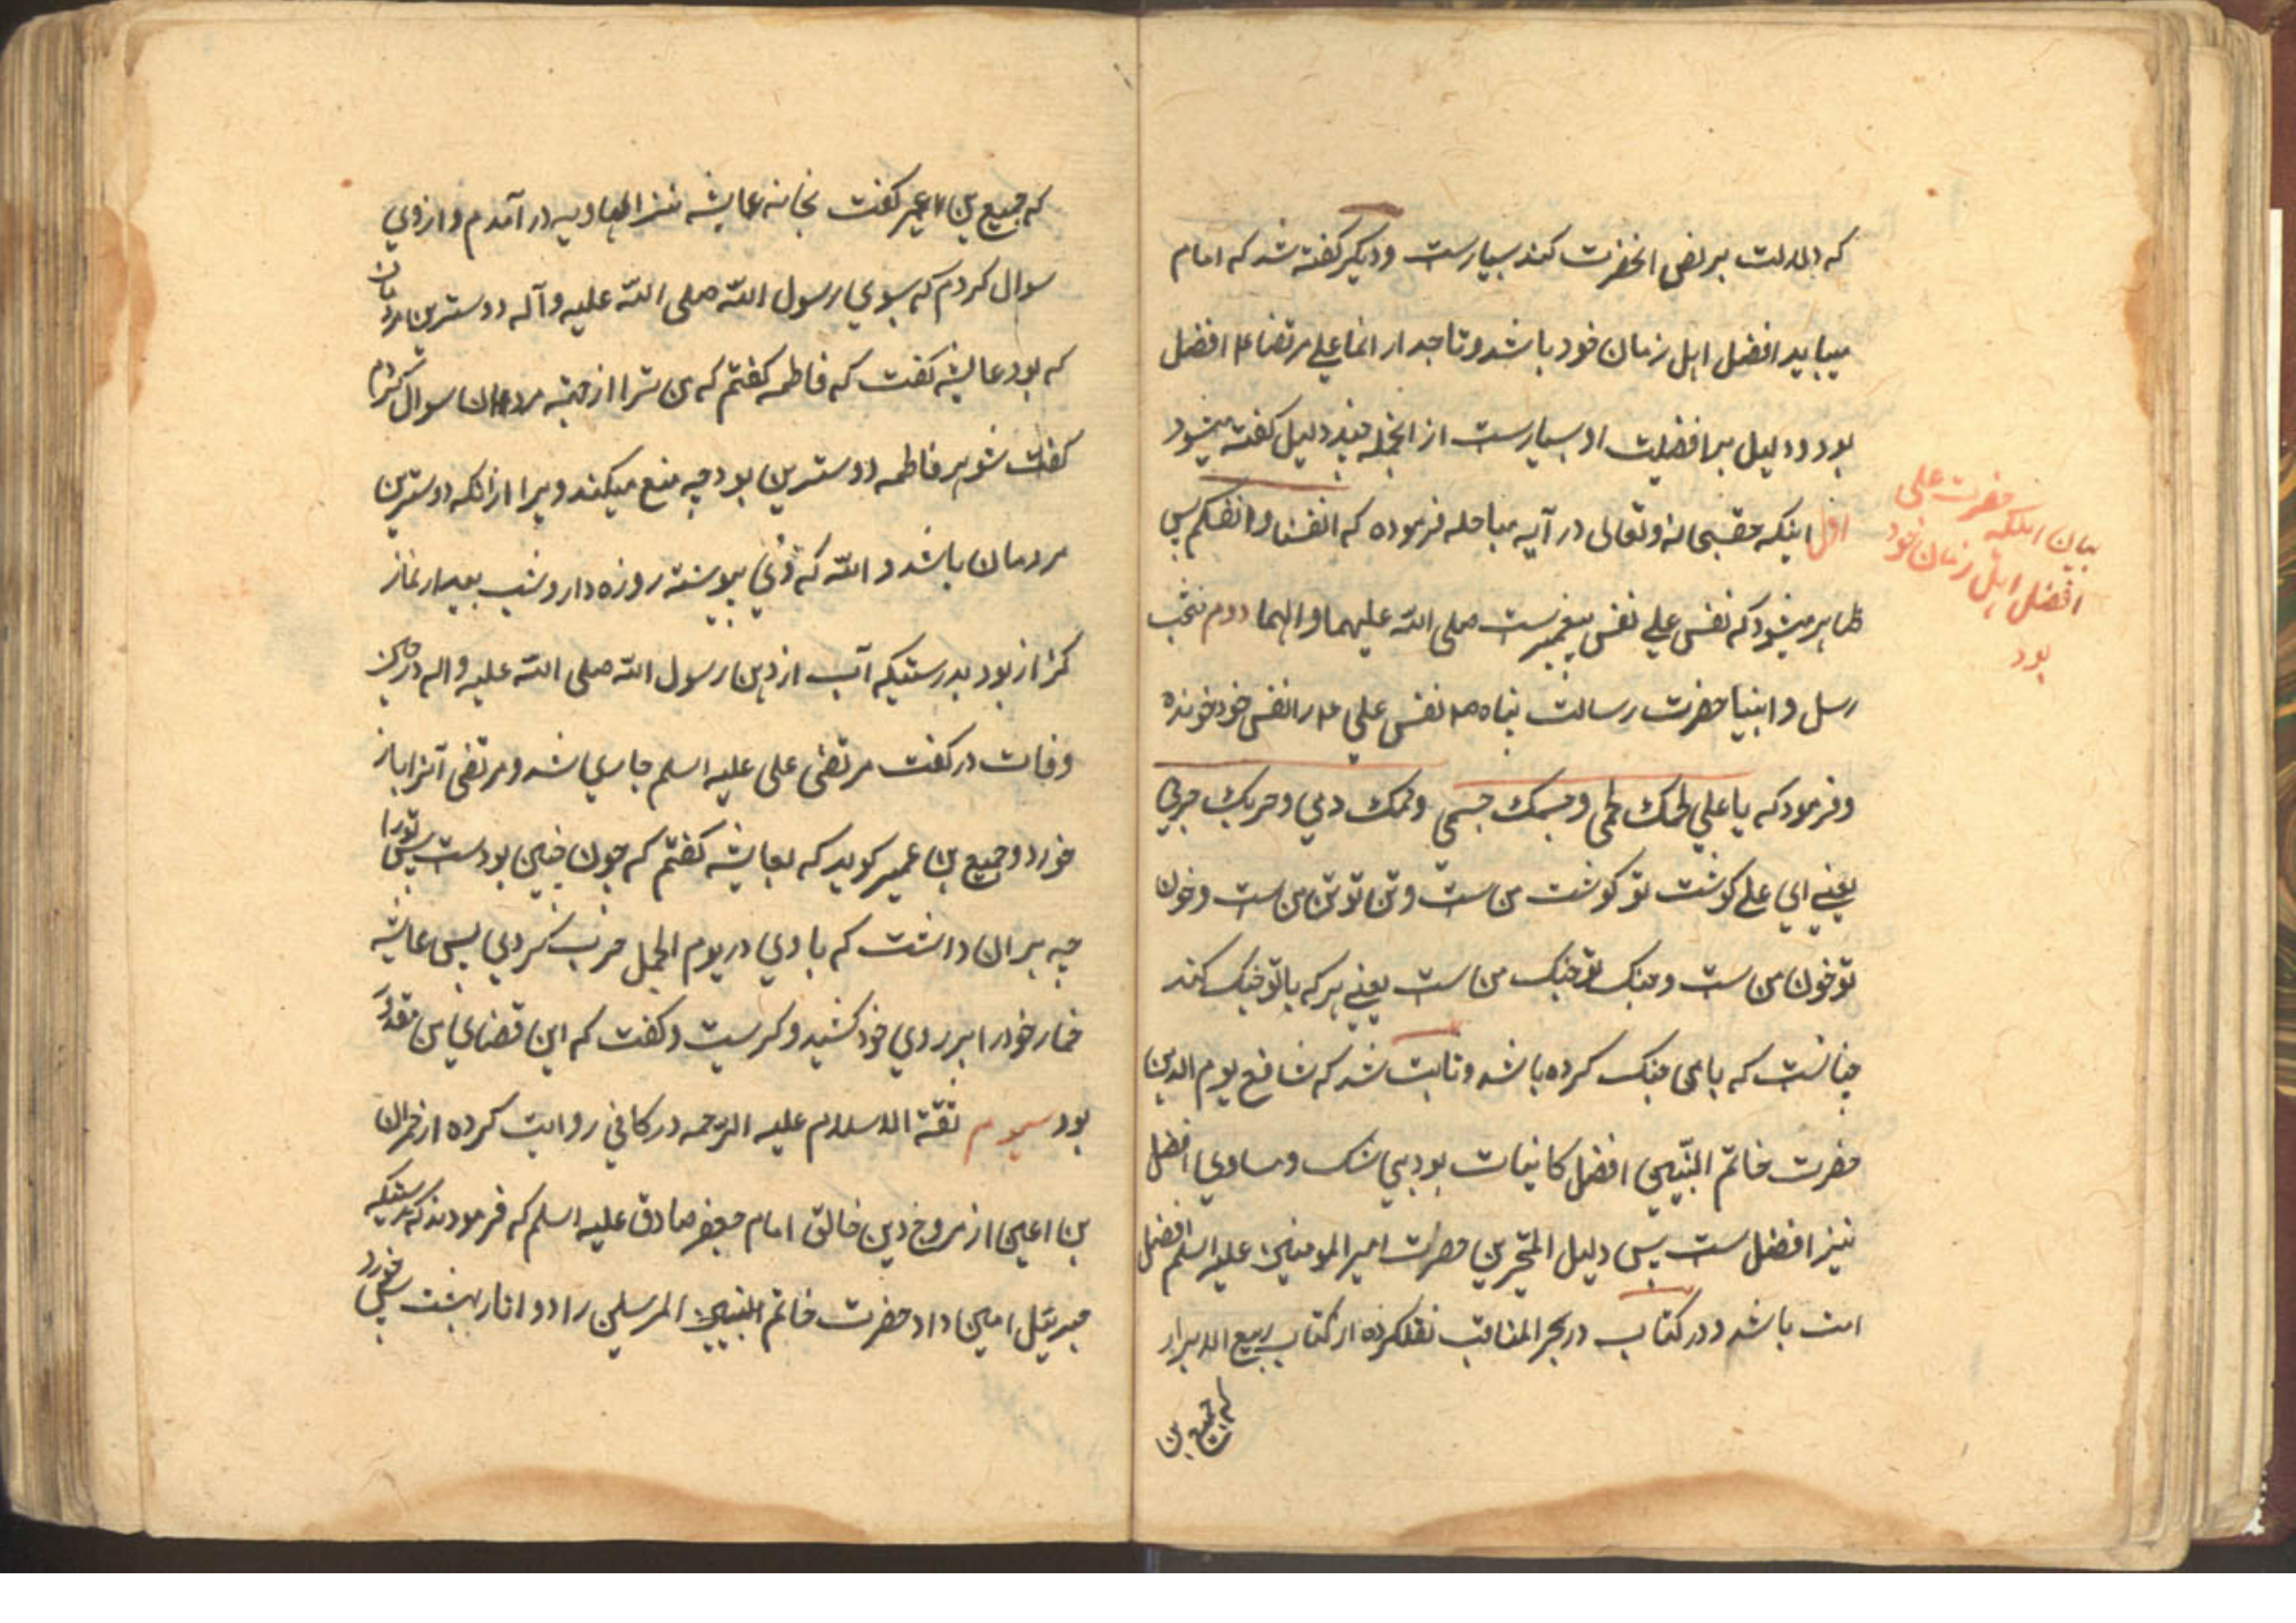 که دلالت بر نص انحضرت کند بسیارست و دیکر کفته شد که امام
میباید افضل اهل زمان خود باشد و تاجدار انما علی مرتضا ع افضل
بود و دلیل بر افضلیت او بسیارست از انجمله چند دلیل کفته میشود
اول اینکه حقسبحانه و تعالی در آیه مباحله فرموده که انفسنا و انفسکم پس
ظاهر میشود که نفس علی نفس پیغمبرست صلی الله علیهما و الهما دوم منتخب
رسل و انبیا حضرت رسالت پناه ص نفس علی ع را نفس خود خونده
و فرمود که یا علی لحمک لحمی و جسمک جسمی و دمک دمی و حربک حربی
یعنی ای علی کوشت تو کوشت من است و تن تو تن من است و خون
تو خون من است و جنک تو جنک من است یعنی هر که با تو جنک کند
چنانست که با من جنک کرده باشد و ثابت شد که شافع یوم الدین
حضرت خاتم النبیین افضل کاینات بود بی شک و مساوی افضل
نیز افضل ست پس دلیل المتحرین حضرت امیر المومنین علیه السلم افضل
امت باشد و در کتاب در بحر المناقب نقلکرده از کتاب ربیع الابرار
که جمیع بن
بیان اینکه حضرت علی
افضل اهل زمان خود
بود
که جمیع بن عمیر کفت بخانه عایشه در آمدم و از وی
سوال کردم که بسوی رسول الله صلی الله علیه و آله دوسترین مردمان
که بود عایشه کفت که فاطمه کفتم که من ترا از جهة مردان سوال کردم
کفت شوهر فاطمه دوسترین بود چه منع میکند ویرا ازانکه دوسترین
مردمان باشد و الله که وی پیوسته روزه دار و شب بیدار نماز
کزار بود بدرستیکه آب از دهن رسول الله صلی الله علیه و اله در حین
وفات در کفت مرتضی علی علیه اسلم جاری شد و مرتضی آنرا باز
خورد و جمیع بن عمیر کوید که بعایشه کفتم که چون چنین بودست پس تورا
چه بران داشت که با وی در یوم الجمل حرب کردی پس عایشه
خمار خود را بر روی خود کشید و کریست و کفت که این قضای من مقدر
بود سیوم ثقة الاسلام علیه الرحمه در کافی روایت کرده از حمران
بن اعین از مروج دین خالق امام جعفر صادق علیه اسلم که فرمودند که بدرستیکه
جبرئیل امین داد حضرت خاتم النبیین المرسلین را دو انار بهشت پس خورد